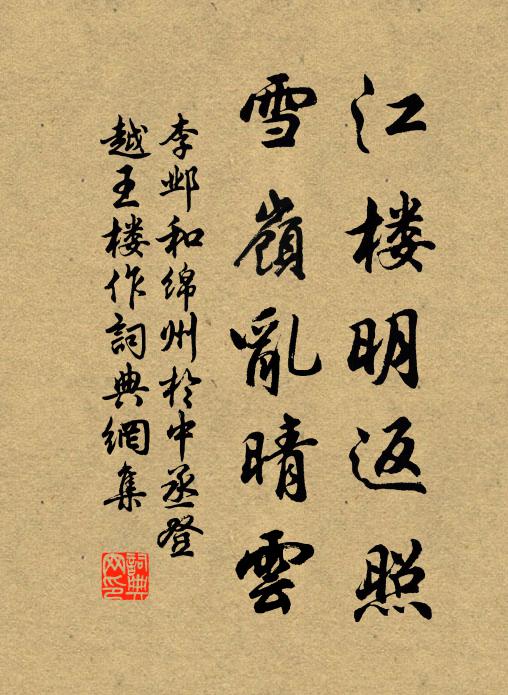 江楼明返照
雪嶺亂晴雲
李邺和绵州於中丞登
越王楼作詞典網集
詞典
网印